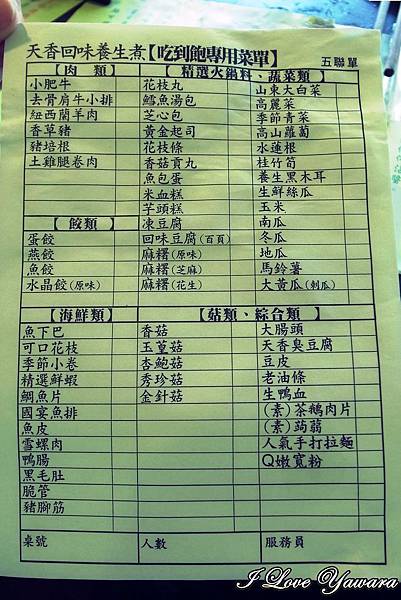 天香回味養生煮【吃到飽專用菜單】 五聯單
【肉 類】
小肥牛
去骨肩牛小排
紐西蘭羊肉
香草豬
豬培根
土雞腿卷肉
【餃類】
蛋餃
燕餃
魚餃
水晶餃(原味)
【精選火鍋料、蔬菜類】
花枝丸
鱈魚湯包
芝心包
黃金起司
花枝條
香菇貢丸
魚包蛋
米血糕
芋頭糕
凍豆腐
回味豆腐(百頁)
麻糬(原味)
麻糬(芝麻)
麻糬(花生)
山東大白菜
高麗菜
季節青菜
高山蘿蔔
水蓮根
桂竹筍
養生黑木耳
生鮮絲瓜
玉米
南瓜
冬瓜
地瓜
馬鈴薯
大黃瓜(刺瓜)
【海鮮類】
魚下巴
可口花枝
季節小卷
精選鮮蝦
鯛魚片
國宴魚排
魚皮
雪螺肉
鴨腸
黑毛肚
脆管
豬腳筋
【菇類、綜合類】
香菇
玉蕈菇
杏鮑菇
秀珍菇
金針菇
大腸頭
天香臭豆腐
豆皮
老油條
生鴨血
(素)茶鵝肉片
(素)蒟蒻
人氣手打拉麵
Q嫩寬粉
桌號 人數 服務員
I Love Yawara